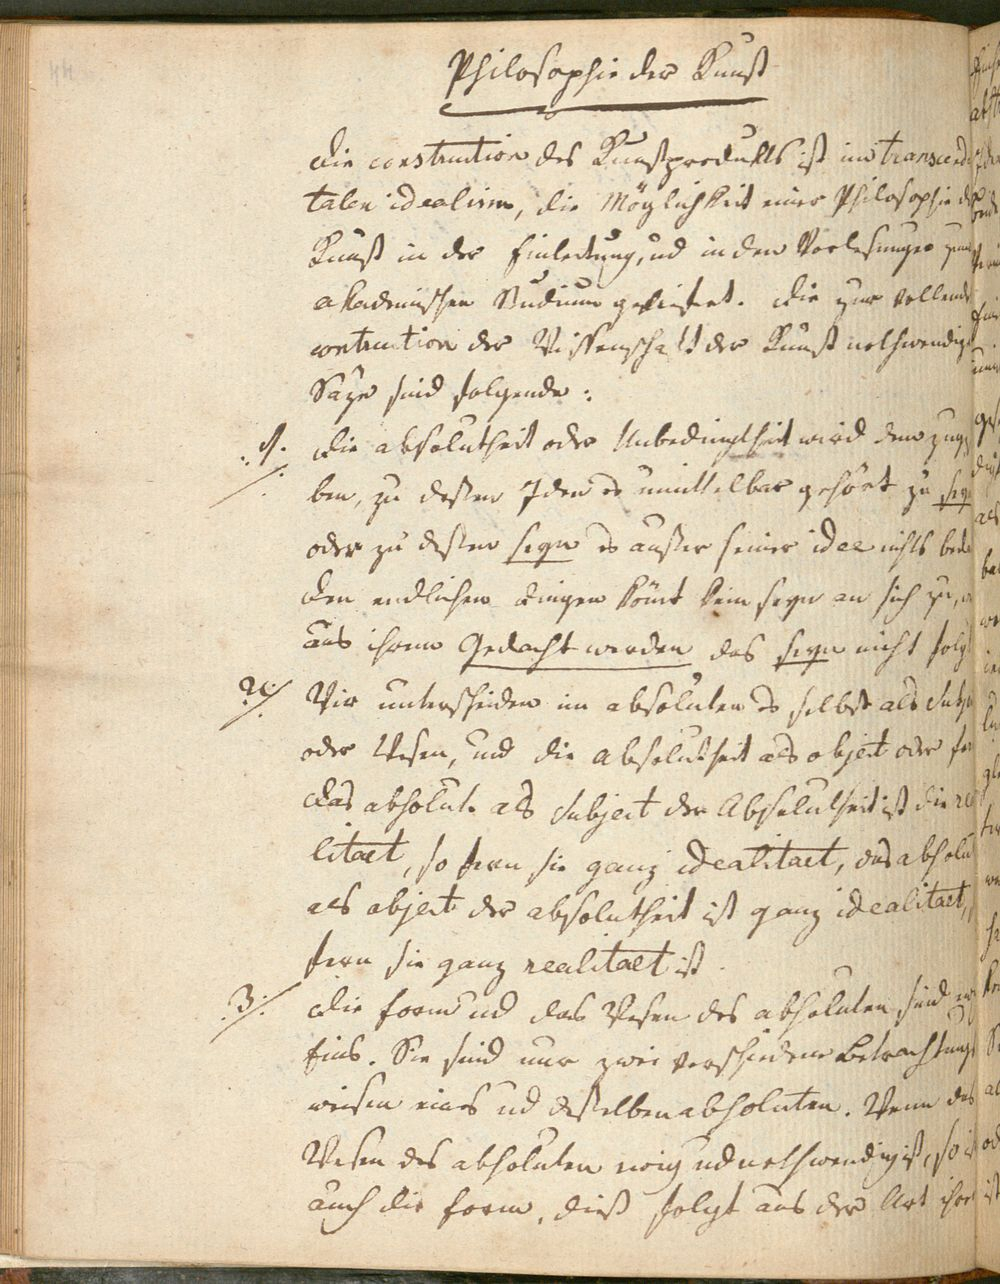 44
Philosophie der Kunst
Die constrution des Kunstprodukts ist im transcend
talen idealism, die Möglichkeit einer Philosophie d
Kunst in der Einleitung, ud in den Vorlesungen zum
akademischen Studium gelistet. Die zur vollend
contruction der Wissenschaft der Kunst nothwendig
Säze sind folgende:
1. Die absolutheit oder Unbedingtheit wird dem zug
ben, zu dessen Idee es unmittelbar gehört zu sey
oder zu dessen seyn es ausser seiner idee nichts bed
den endlichen dingen kömt kein seyn an sich zu,
aus ihrem Gedacht werden das seyn nicht folgt
2. Wir unterscheiden im absoluten es selbst als Subj
oder Wesen, und die absolutheit als object oder for
Das absolute als Subject der Absolutheit ist die rea
litaet, so fern sie ganz idealitaet, das absolu
als object der absolutheit ist ganz idealitaet,
fern sie ganz realitaet ist.
3. Die form ud das Wesen des absoluten sind
Eins. Sie sind nur zwei verschiedene Betrachtungs
weisen eines ud desselben absoluten. Wenn das
Wesen des absoluten ewig ud nothwendig ist, so is
auch die form, dieß folgt aus der Art ihre